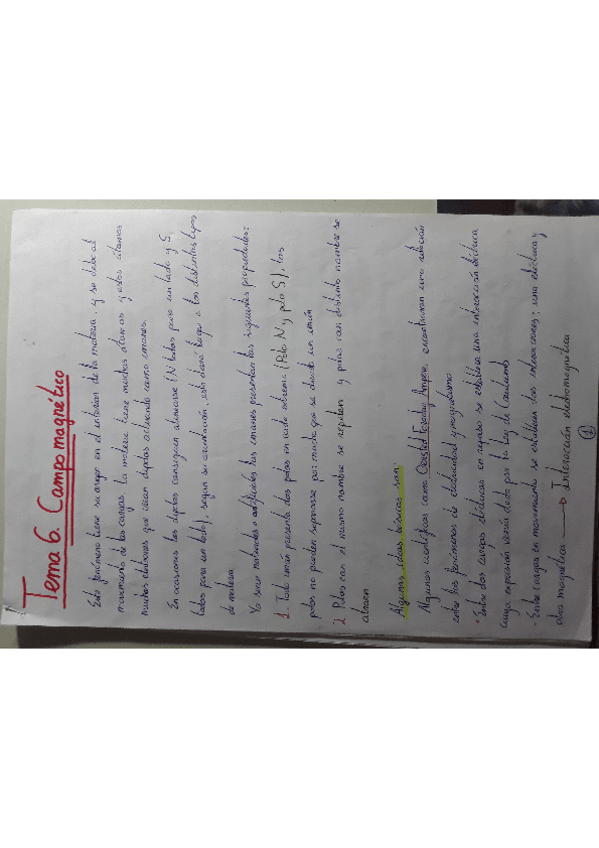 Tema 6. Campo magnético
Este fenómeno tiene su origen en el interior de la materia, y se debe al
movimiento de las cargas. La materia tiene muchos átomos y estos átomos
muchos electrones que crean dipolos actuando como imanes.
En ocasiones los dipolos consiguen alinearse (N todos para un lado y S
todos para un lado), según su orientación, esto dará lugar a los distintos tipos
de materia
Ya sean naturales o artificiales los imanes presentan las siguientes propiedades:
1. Todo imán presenta dos polos en cada extremo (Polo N y polo S). Los
polos no pueden separarse por mucho que se divida un imán
2. Polos con el mismo nombre se repelen y polos con distinto nombre se
atraen
Algunas ideas básicas son:
Algunos científicos como Oersted Faraday Ampere, encontraron una relación
entre los fenómenos de electricidad y magnetismo
- Entre dos cargas eléctricas en reposo se establece una interacción eléctrica
cuya expresión venía dada por la Ley de Coulomb
- Entre cargas en movimiento se establecen dos interacciones; una eléctrica y
otra magnética → Interacción electromagnética
1